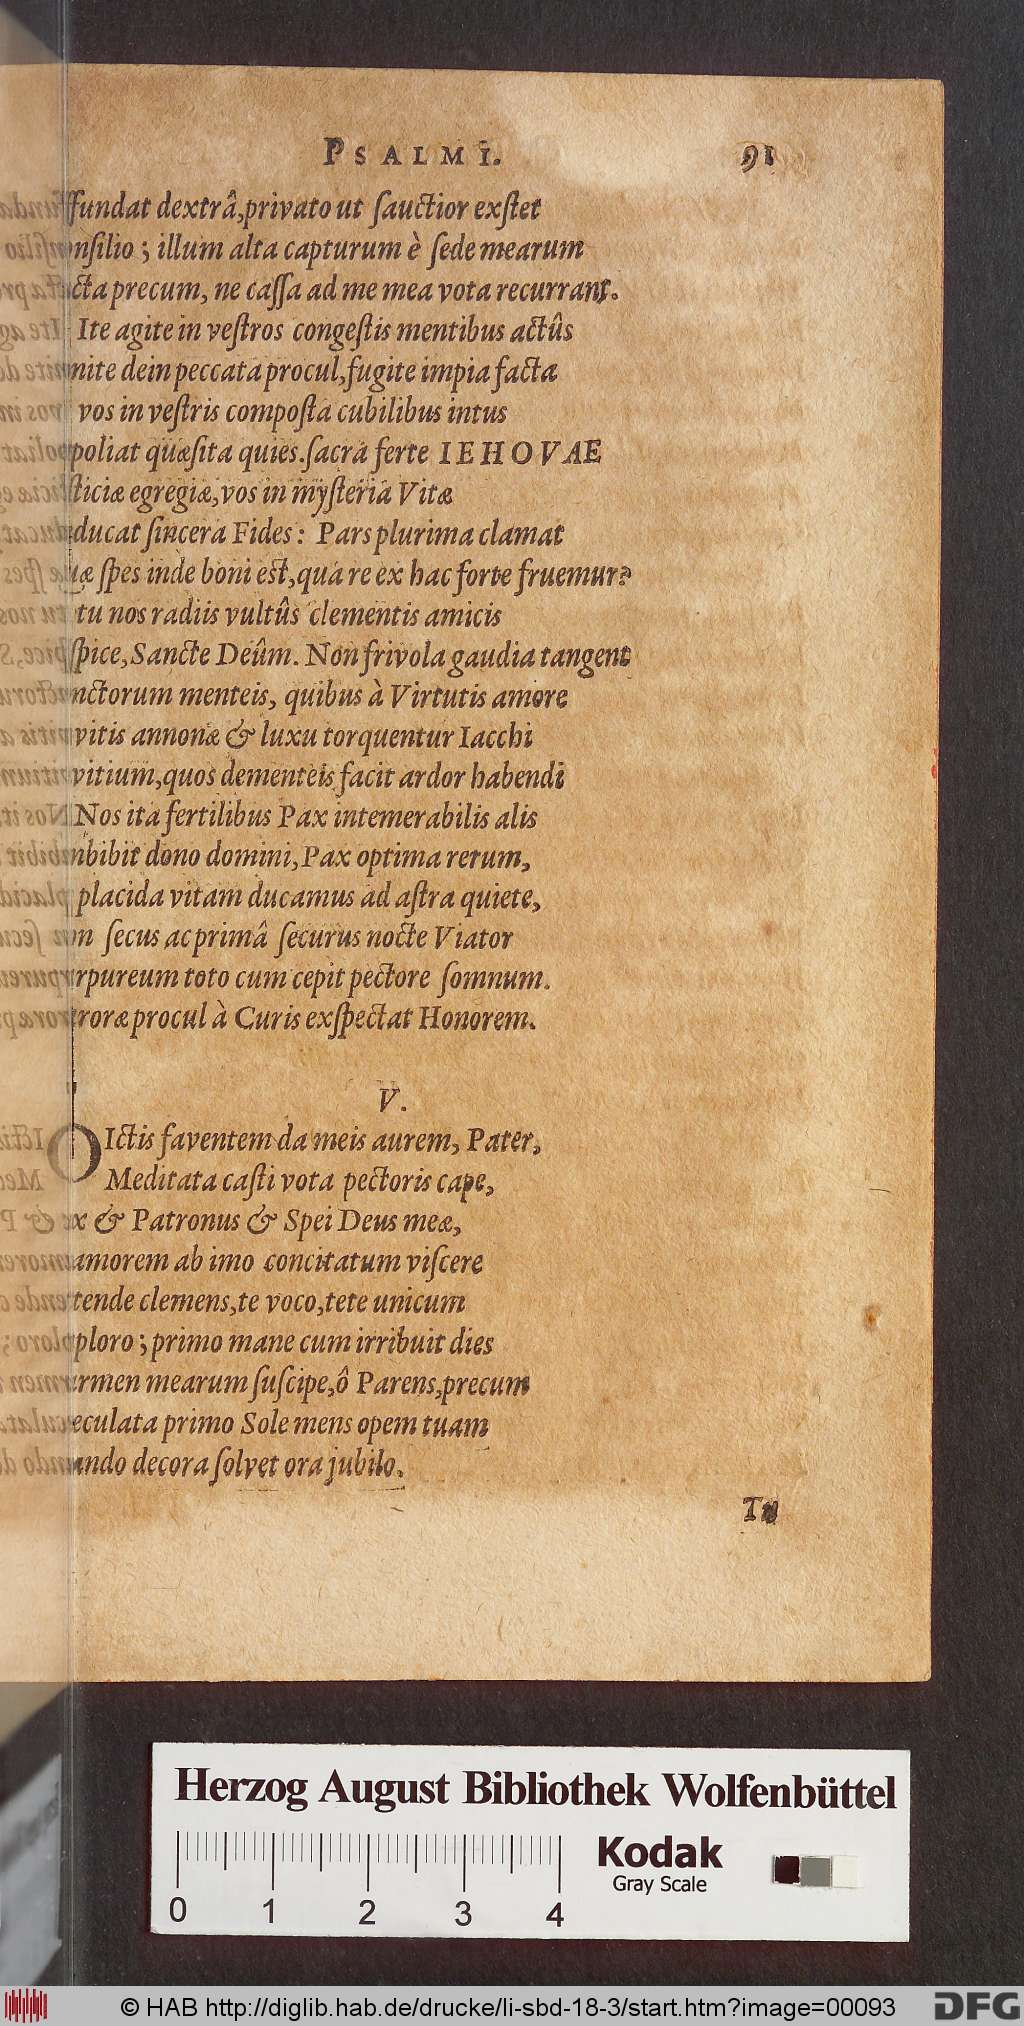 PSALMI. 91
ffundat dextrâ, privato ut ſauctior exſtet
nſilio; illum alta capturum è ſede mearum
cta precum, ne caſſa ad me mea vota recurrant.
Ite agite in veſtros congeſtis mentibus actûs
mite dein peccata procul, fugite impia facta
vos in veſtris compoſta cubilibus intus
poliat quæſita quies. ſacra ferte IEHOVAE
ſticiæ egregiæ, vos in myſteria Vitæ
ducat ſincera Fides: Pars plurima clamat
uæ ſpes inde boni eſt, qua re ex hac forte fruemur?
tu nos radiis vultûs clementis amicis
ſpice, Sancte Deûm. Non frivola gaudia tangent
nctorum menteis, quibus à Virtutis amore
vitis annonæ & luxu torquentur Iacchi
vitium, quos dementeis facit ardor habendi
Nos ita fertilibus Pax intemerabilis alis
nbibit dono domini, Pax optima rerum,
placida vitam ducamus ad aſtra quiete,
n ſecus ac primâ ſecurus nocte Viator
rpureum toto cum cepit pectore ſomnum.
roræ procul à Curis exſpectat Honorem.
V.
OIctis faventem da meis aurem, Pater,
Meditata caſti vota pectoris cape,
x & Patronus & Spei Deus meæ,
amorem ab imo concitatum viſcere
tende clemens, te voco, tete unicum
ploro; primo mane cum irribuit dies
rmen mearum ſuſcipe, ô Parens, precum
eculata primo Sole mens opem tuam
ndo decora ſolvet ora jubilo.
Tu
Herzog August Bibliothek Wolfenbüttel
Kodak
Gray Scale
0 1 2 3 4
© HAB http://diglib.hab.de/drucke/li-sbd-18-3/start.htm?image=00093 DFG